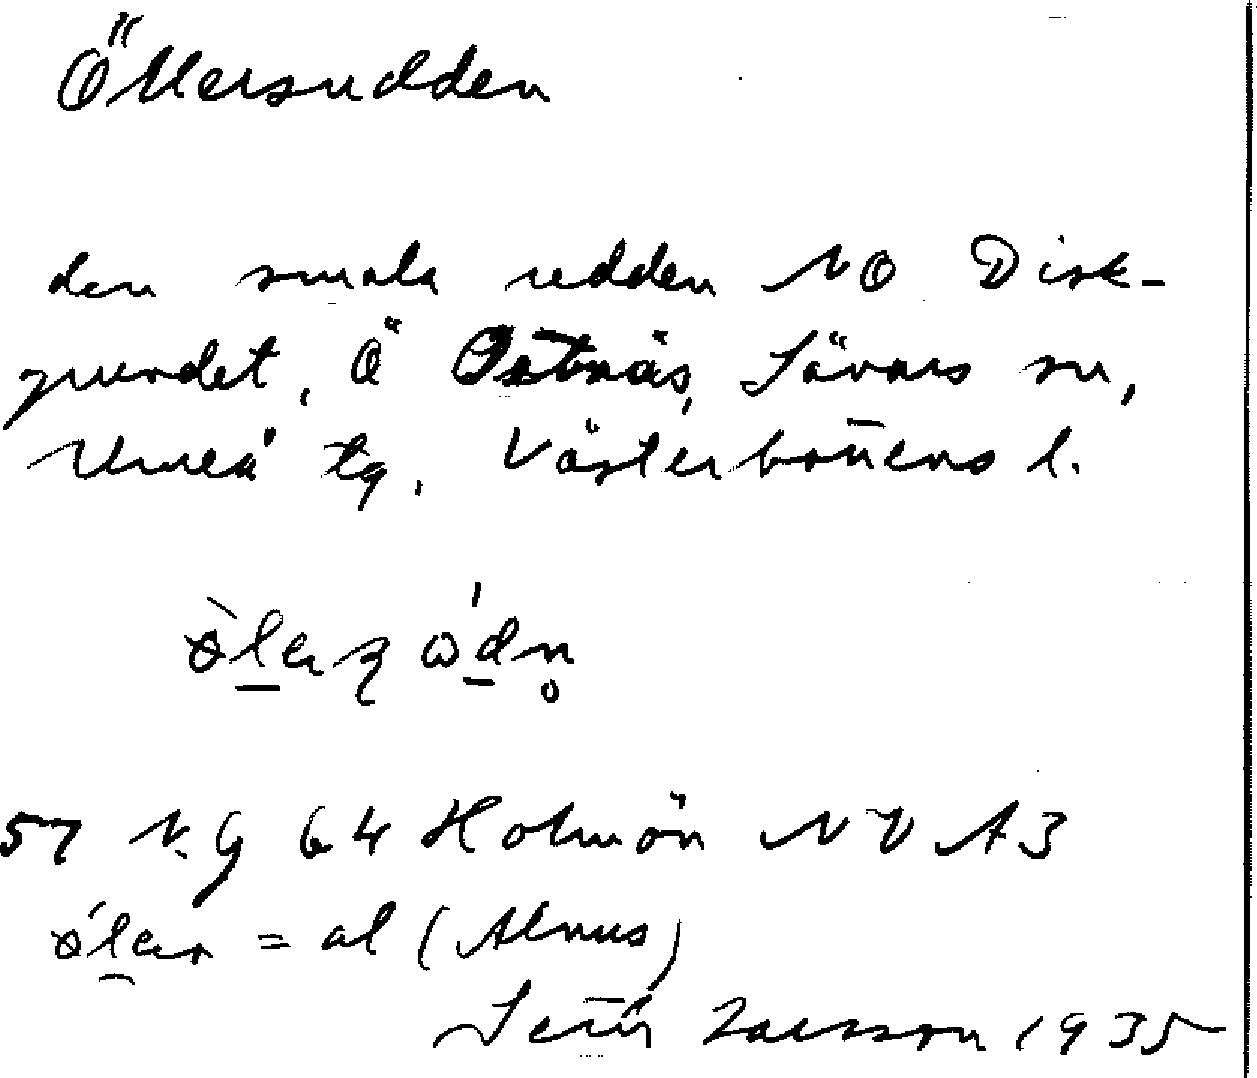 Öllersudden
den smala udden NO Disk-
grundet, Ö Ostnäs, Sävars sn,
Umeå tg. Västerbottens l.
57 N.g 64 Holmön NV A3
= al (Alnus)
Larsson 1935